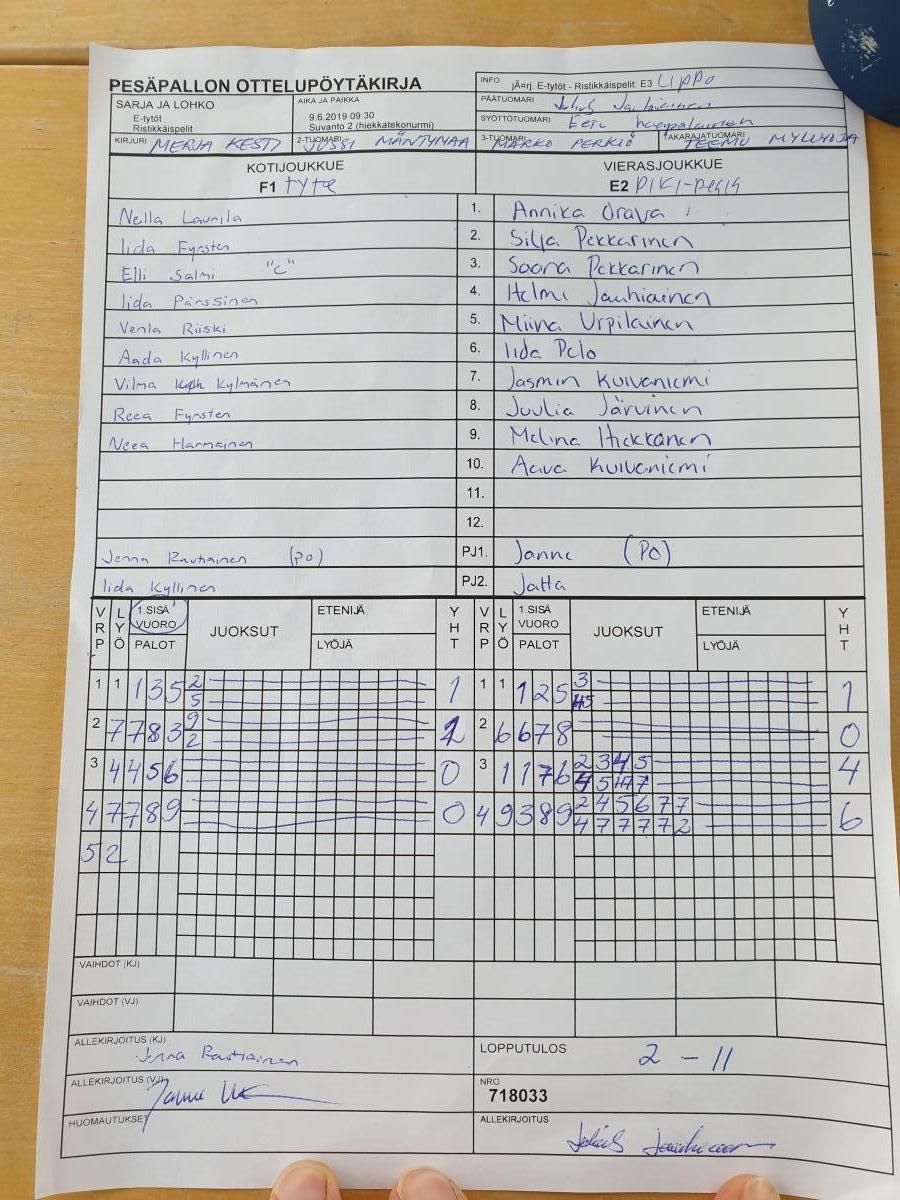 PESÄPALLON OTTELUPÖYTÄKIRJA
INFO jÄ¤rj. E-tytöt - Ristikkäispelit: E3 Lippo
SARJA JA LOHKO
E-tytöt
Ristikkäispelit
AIKA JA PAIKKA
9.6.2019 09:30
Suvanto 2 (hiekkatekonurmi)
PÄÄTUOMARI Julius Jauhiainen
SYÖTTÖTUOMARI Eetu
KIRJURI MERJA KESTI 2-TUOMARI JUSSI MÄNTYMAA 3-TUOMARI MARKO PERKIÖ TAKARAJATUOMARI TEEMU MYLLYOJA
KOTIJOUKKUE VIERASJOUKKUE
F1 tyta E2 PIKI-pesis
Nella Laurila 1. Annika Orava
Iida Fyrsten 2. Silja Pekkarinen
Elli Salmi "C" 3. Saana Pekkarinen
Iida Pärssinen 4. Helmi Jauhiainen
Venla Riiski 5. Miina Urpilainen
Aada Kyllinen 6. Iida Pelo
Vilma Kylmänen 7. Jasmin Kuivaniemi
Reea Fyrsten 8. Juulia Järvinen
Neea Harmainen 9. Melina Hiekkanen
10. Aava Kuivaniemi
11.
12.
Jenna Rautiainen (PO) PJ1. Janne (PO)
Iida Kyllinen PJ2. Jatta
VRP LYÖ 1.SISÄ VUORO PALOT JUOKSUT ETENIJÄ LYÖJÄ YHT VRP LYÖ 1.SISÄ VUORO PALOT JUOKSUT ETENIJÄ LYÖJÄ YHT
1 1 1 3 5 2 1 1 1 1 2 5 3 1
5
2 7 7 8 3 9 2 6 6 7 8 0
2
3 4 4 5 6 0 3 1 1 7 6 2 3 4 5 4
4 7 7 8 9 0 4 9 3 8 9 2 4 5 6 7 7 6
4 7 7 7 7 2
5 2
VAIHDOT (KJ)
VAIHDOT (VJ)
ALLEKIRJOITUS (KJ) Jenna Rautiainen
LOPPUTULOS 2 - 11
ALLEKIRJOITUS (VJ) Janne
NRO
718033
HUOMAUTUKSET
ALLEKIRJOITUS